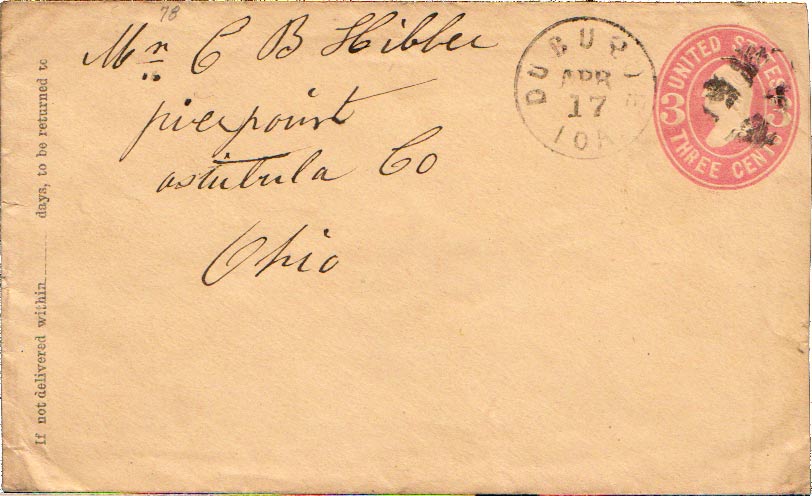 78
Mr C B Hibbee
pierpoint
astubula Co
Ohio
DUBUQUE
APR
17
IOA
UNITED STATES
3 3
THREE CENT
If not delivered within ______ days, to be returned to